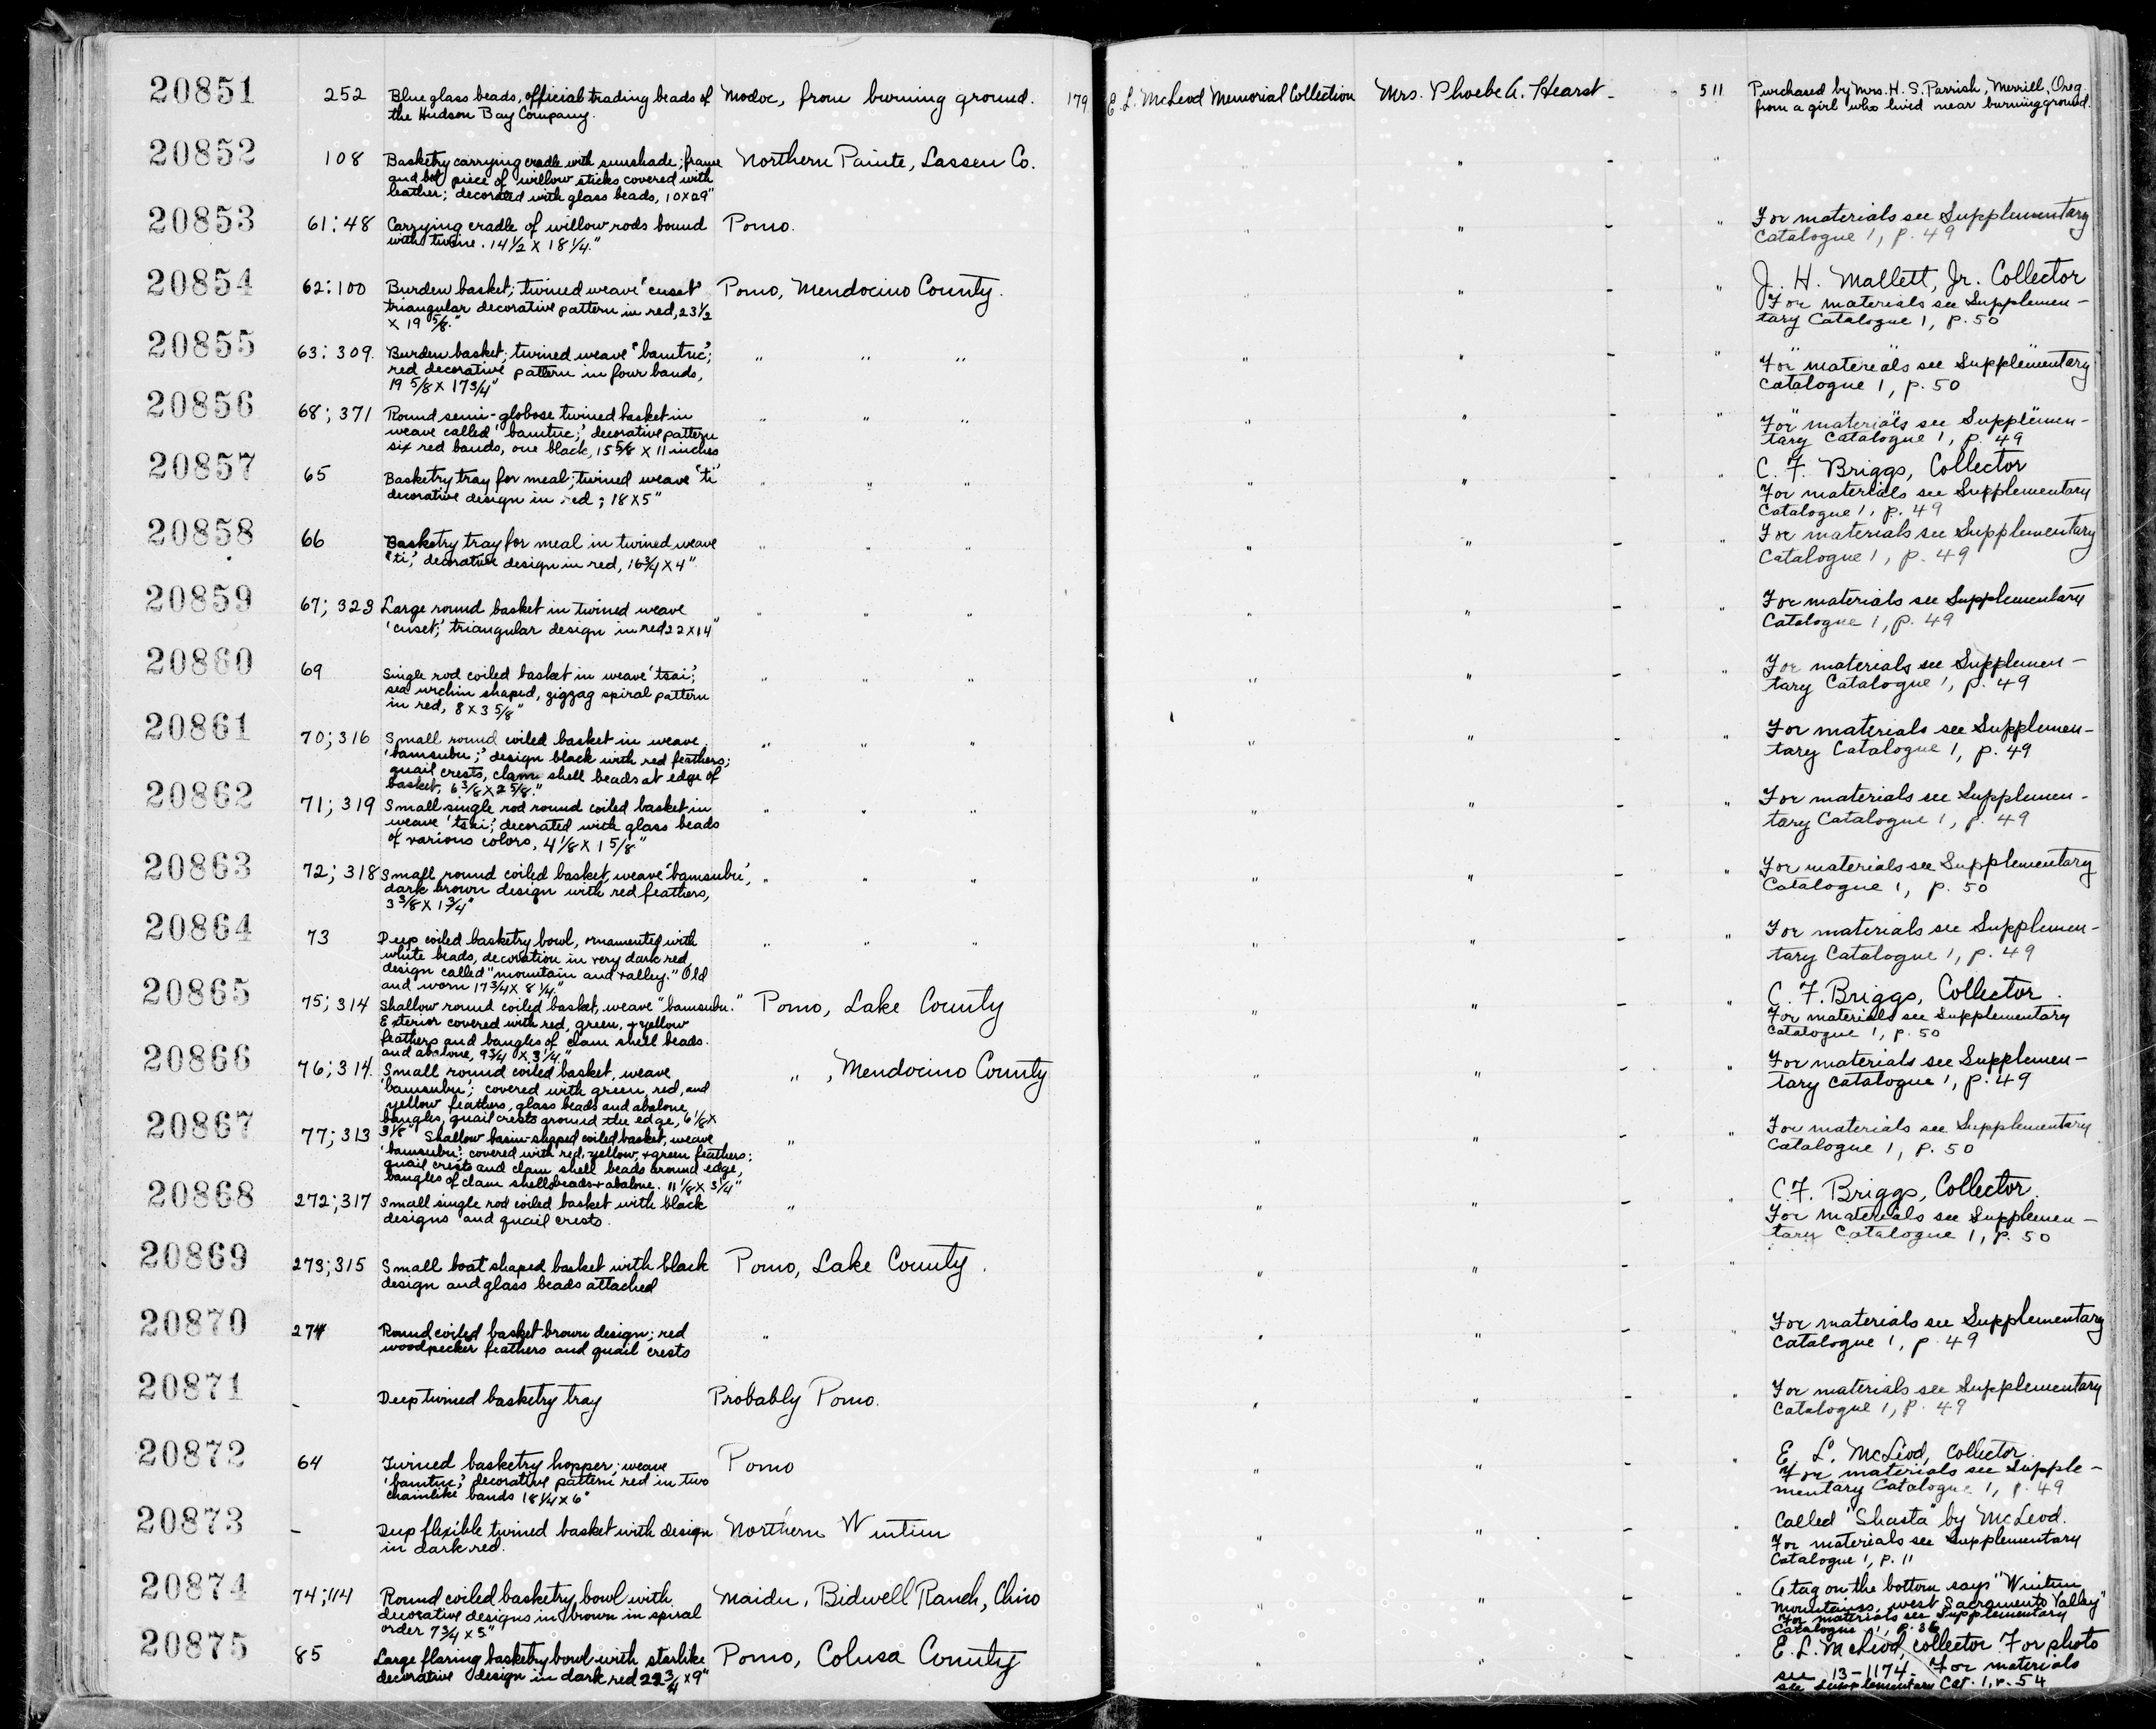 20851 252 Blue glass beads, official trading beads of Modoc, from burning ground. 179 E. L. McLeod Memorial Collection Mrs. Phoebe A. Hearst - 511 Purchased by Mrs. H. S. Parrish, Merrill, Oreg.
the Hudson Bay Company. from a girl who lived near burning ground.
20852 108 Basketry carrying cradle with sunshade; frame Northern Paiute, Lassen Co. " " - "
and piece of willow sticks covered with
leather; decorated with glass beads, 10 x 29"
20853 61; 48 Carrying cradle of willow rods bound Pomo. " " - " For materials see Supplementary
with twine. 14 1/2 x 18 1/4." Catalogue 1, p. 49
20854 62; 100 Burden basket; twined weave 'cuset' Pomo, Mendocino County. " " - " J. H. Mallett, Jr. Collector
triangular decorative pattern in red, 23 1/2 For materials see Supplemen-
x 19 5/8." tary Catalogue 1, p. 50
20855 63; 309. Burden basket; twined weave "bamtuc"; " " " " " - " For materials see Supplementary
red decorative pattern in four bands, Catalogue 1, p. 50
19 5/8 x 17 3/4"
20856 68; 371 Round semi-globose twined basket in " " " " " - " For materials see Supplemen-
weave called 'bamtuc;' decorative pattern tary Catalogue 1, p. 49
six red bands, one black, 15 5/8 x 11 inches
20857 65 Basketry tray for meal; twined weave 'ti' " " " " " - " C. F. Briggs, Collector
decorative design in red; 18 x 5" For materials see Supplementary
Catalogue 1, p. 49
20858 66 Basketry tray for meal in twined weave " " " " " - " For materials see Supplementary
'ti,' decorative design in red, 16 3/4 x 4" Catalogue 1, p. 49
20859 67; 323 Large round basket in twined weave " " " " " - " For materials see Supplementary
'cuset;' triangular design in red 22 x 14" Catalogue 1, p. 49
20860 69 Single rod coiled basket in weave 'tsai;' " " " " " - " For materials see Supplemen-
sea urchin shaped, zigzag spiral pattern tary Catalogue 1, p. 49
in red, 8 x 3 5/8"
20861 70; 316 Small round coiled basket in weave " " " " " - " For materials see Supplemen-
'bamsubu;' design black with red feathers; tary Catalogue 1, p. 49
quail crests, clam shell beads at edge of
basket, 6 3/8 x 2 5/8."
20862 71; 319 Small single rod round coiled basket in " " " " " - " For materials see Supplemen-
weave 'tsai;' decorated with glass beads tary Catalogue 1, p. 49
of various colors, 4 1/8 x 1 5/8"
20863 72; 318 Small round coiled basket, weave 'bamsubu', " " " " " - " For materials see Supplementary
dark brown design with red feathers, Catalogue 1, p. 50
3 3/8 x 1 3/4"
20864 73 Deep coiled basketry bowl, ornamented with " " " " " - " For materials see Supplemen-
white beads, decoration in very dark red, tary Catalogue 1, p. 49
design called "mountain and valley." Old
and worn 17 3/4 x 8 1/4."
20865 75; 314 Shallow round coiled basket, weave "bamsubu." Pomo, Lake County " " - " C. F. Briggs, Collector.
Exterior covered with red, green, + yellow For materials see Supplementary
feathers and bangles of clam shell beads. Catalogue 1, p. 50
and abalone, 9 3/4 x 3 1/4."
20866 76; 314. Small round coiled basket, weave " , Mendocino County " " - " For materials see Supplemen-
'bamsubu'; covered with green, red, and tary Catalogue 1, p. 49
yellow feathers, glass beads and abalone
bangles, quail crests around the edge, 6 1/8 x
20867 77; 313 3 1/8" Shallow basin-shaped coiled basket, weave " " " - " For materials see Supplementary
'bamsubu'; covered with red, yellow, + green feathers; Catalogue 1, p. 50
quail crests and clam shell beads around edge,
bangles of clam shell beads + abalone. 11 1/8 x 3 1/4"
20868 272; 317 Small single rod coiled basket with black " " " - " C. F. Briggs, Collector.
designs and quail crests. For materials see Supplemen-
tary Catalogue 1, p. 50
20869 273; 315 Small boat shaped basket with black Pomo, Lake County. " " - "
design and glass beads attached
20870 274 Round coiled basket brown design; red " " " - " For materials see Supplementary
woodpecker feathers and quail crests Catalogue 1, p. 49
20871 - Deep twined basketry tray Probably Pomo. " " - " For materials see Supplementary
Catalogue 1, p. 49
20872 64 Twined basketry hopper; weave Pomo " " - " E. L. McLeod, collector.
'bamtuc,' decorative pattern red in two For materials see Supple-
chainlike bands 18 1/4 x 6" mentary Catalogue 1, p. 49
20873 - Deep flexible twined basket with design Northern Wintun " " - " Called "Shasta" by McLeod.
in dark red. For materials see Supplementary
Catalogue 1, p. 11
20874 74; 114 Round coiled basketry bowl with Maidu, Bidwell Ranch, Chico " " - " A tag on the bottom says "Wintun
decorative designs in brown in spiral Mountains, west Sacramento Valley"
order 7 3/4 x 5" For materials see Supplementary
Catalogue 1, p. 36
20875 85 Large flaring basketry bowl with starlike Pomo, Colusa County " " - " E. L. McLeod, collector. For photo
decorative design in dark red 22 3/4 x 9" see 13-1174. For materials
see Supplementary Cat. 1, p. 54